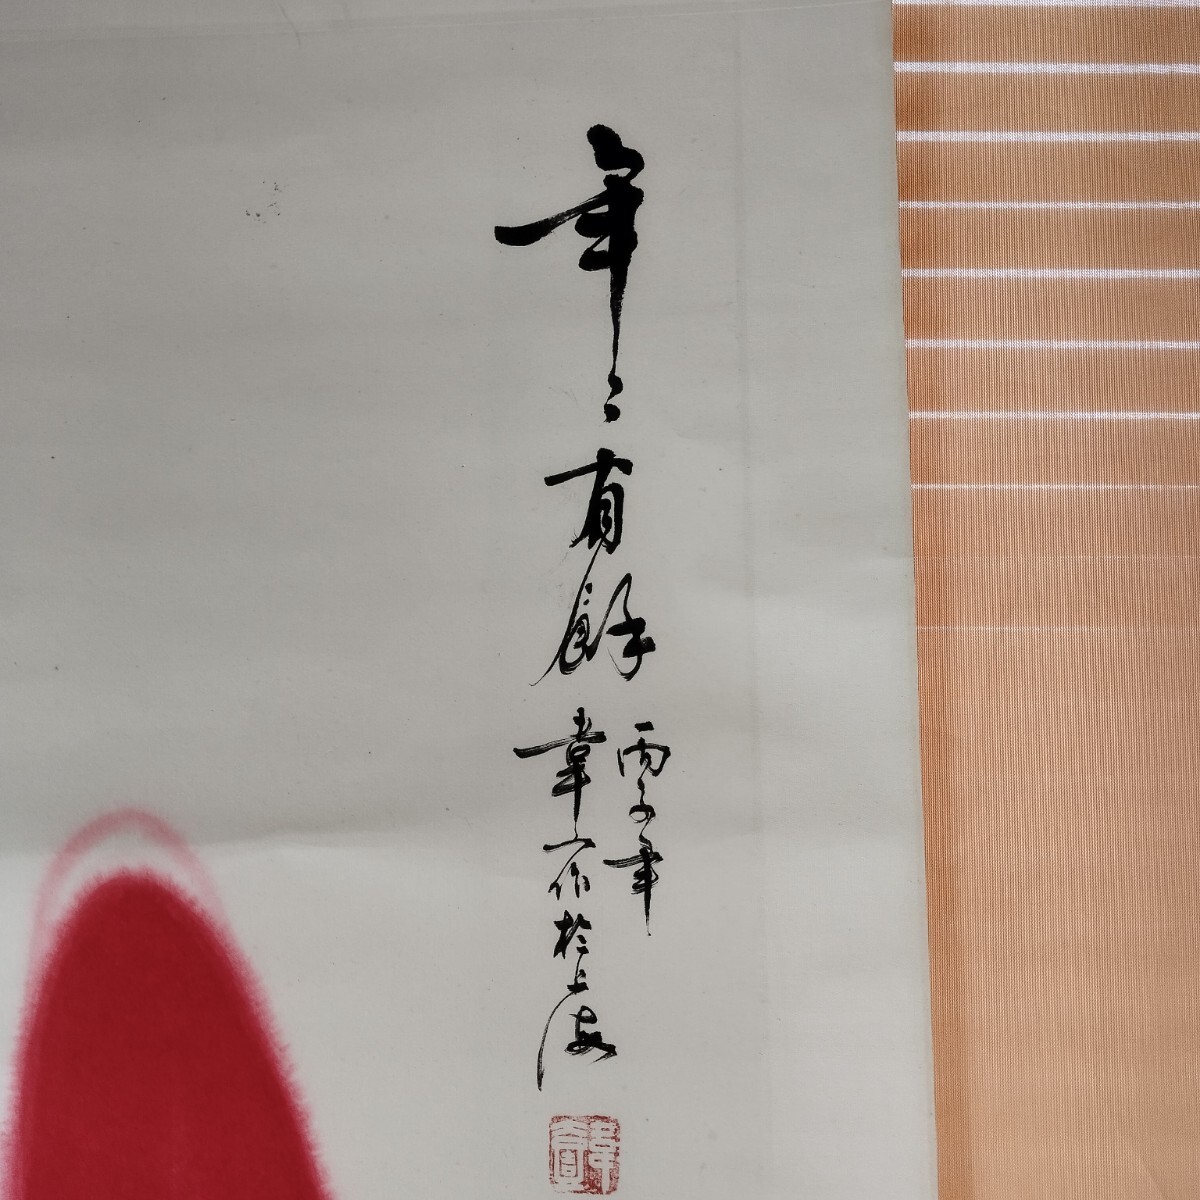 年々有餘
丙子年
韋六作於上海